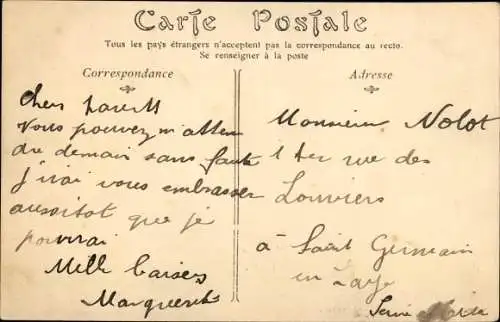 Carte Postale
Tous les pays étrangers n'acceptent pas la correspondance au recto.
Se renseigner à la poste
Correspondance
Chers
Vous pouvez m'atten
dre demain sans faute
j'irai vous embrasser
aussitot que je
pourrai
Mille baisers
Marguerite
Adresse
Monsieur Nolot
1 ter rue des
Louviers
à Saint Germain
en Laye
Seine